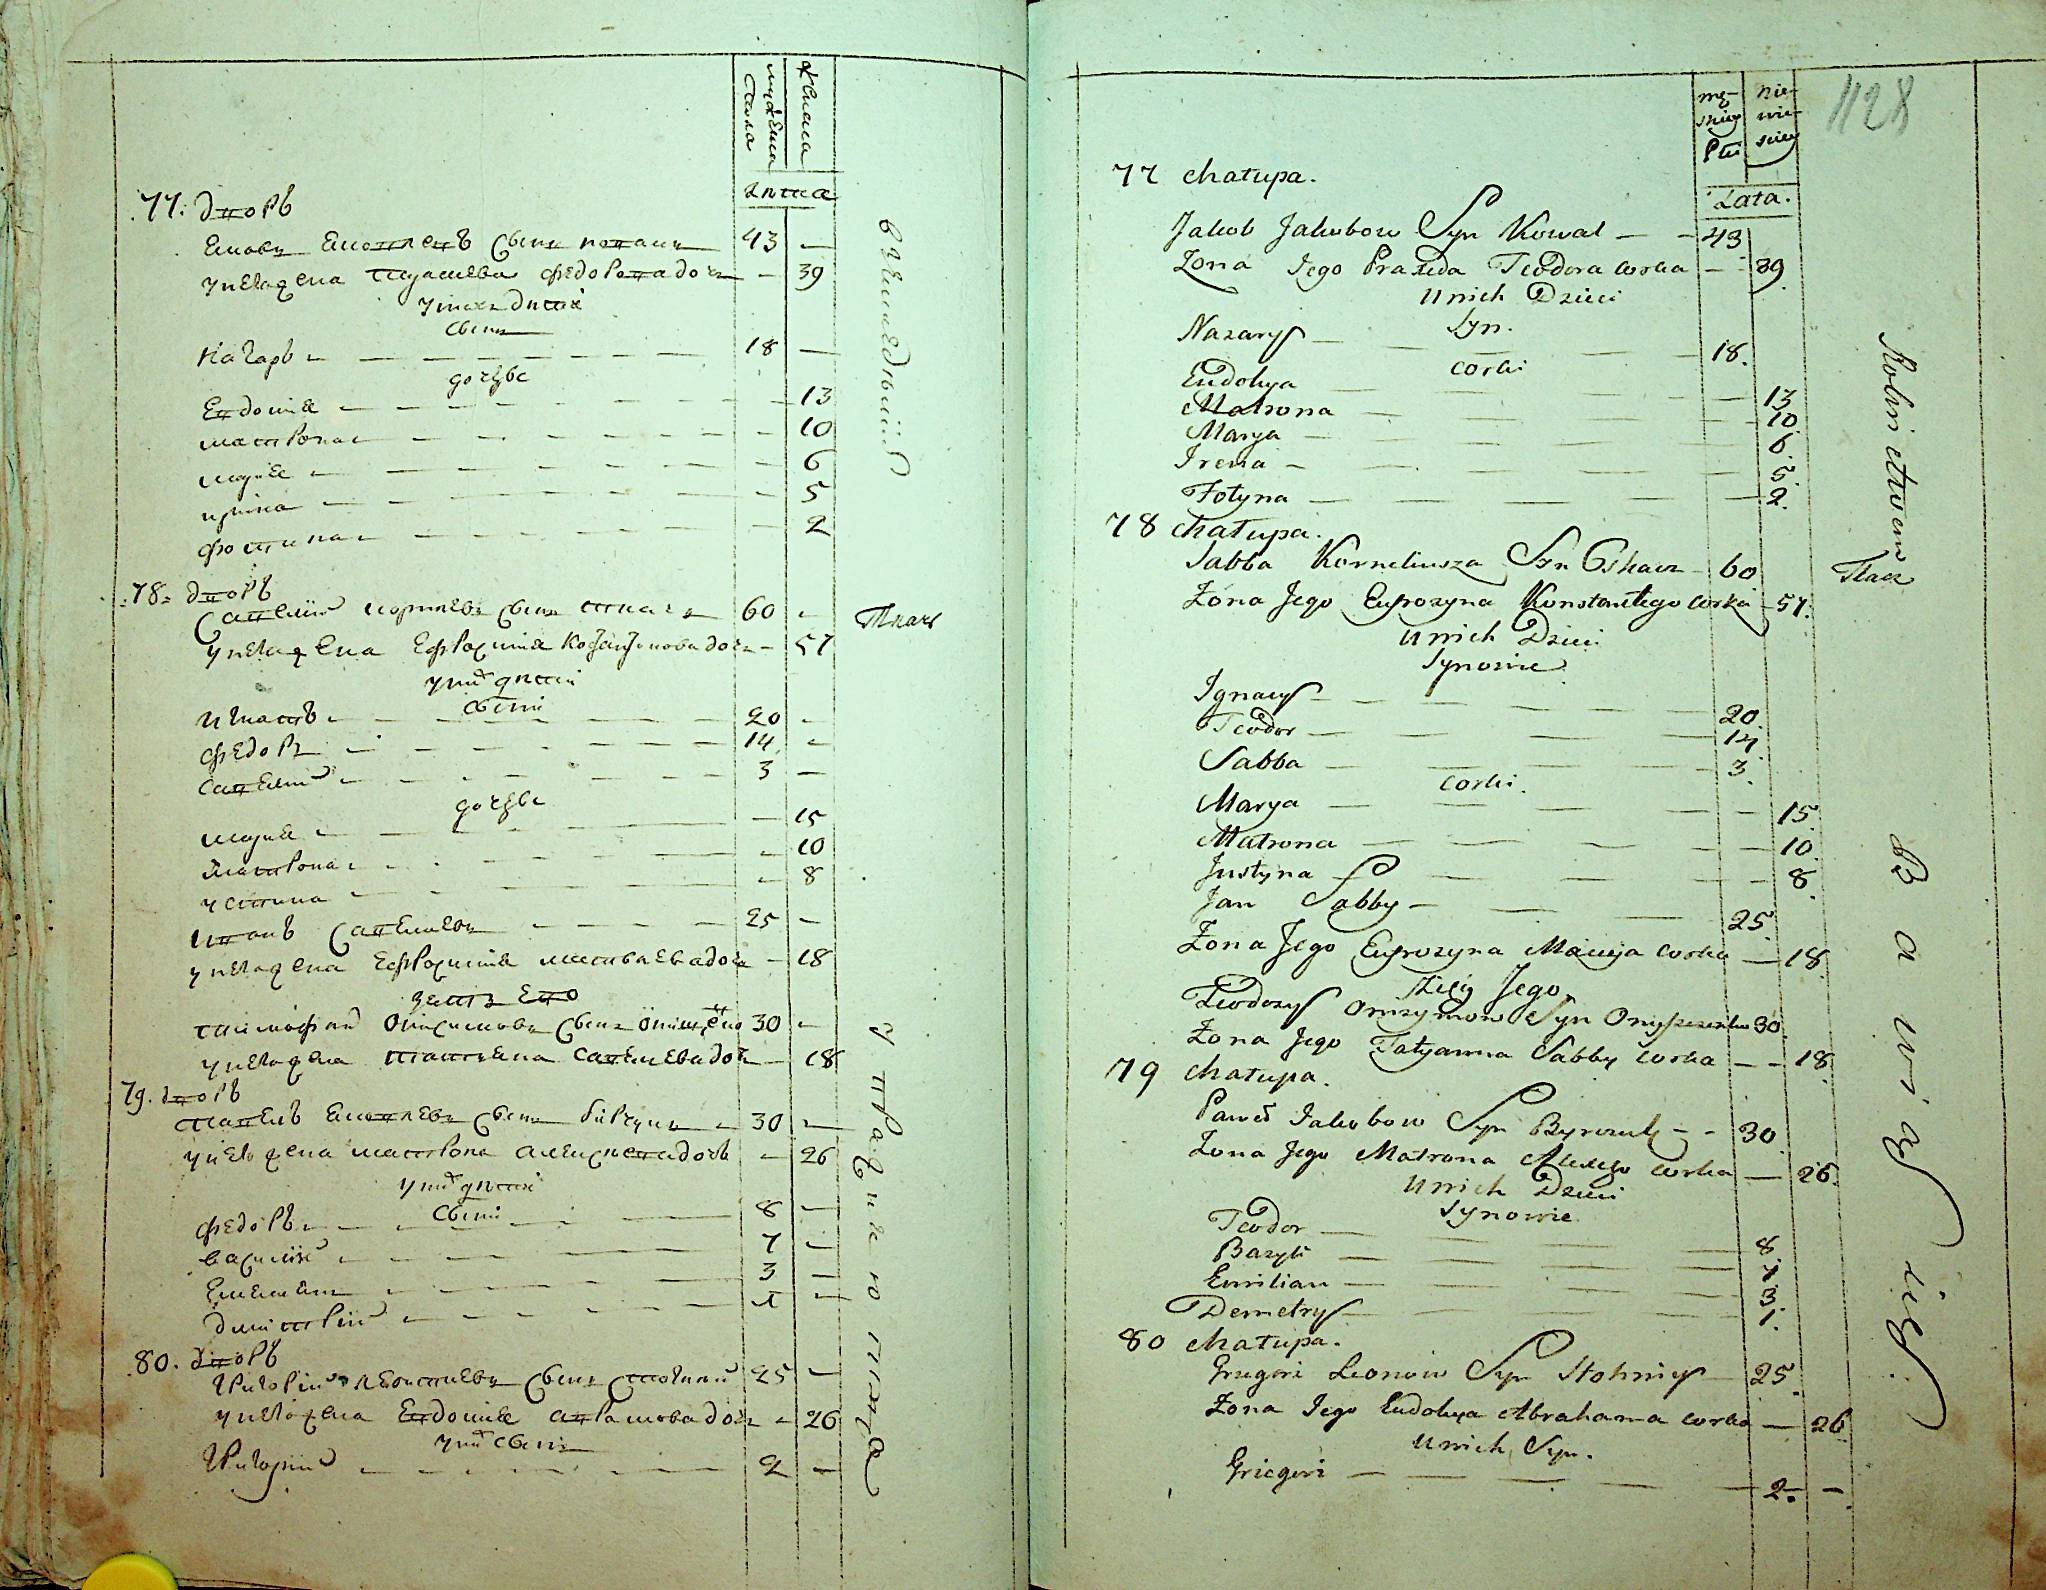 мужеска пола
женска
лѣта
77: дворъ
Яковъ Яковлевъ сынъ коваль 43 —
у него жена параскева федорова дочь — 39
у нихъ дѣти
сынъ
Назаръ 18 —
дочери
Евдокия — 13
матрона — 10
мария — 6
ирина — 5
фотина — 2
78: дворъ
Савелий корнѣевъ сынъ ткачъ 60 —
у него жена Ефросиния Константинова дочь — 57
у них дѣти
сыни
Игнатъ 20 —
федоръ 14 —
савелий 3 —
дочери
мария — 15
матрона — 10
устина — 8
Иванъ Савельевъ 25 —
у него жена Ефросиния матвеева дочь — 18
зять Его
тимофей Онисимовъ сынъ 30 —
у него жена татияна савельева дочь — 18
79. дворъ
павелъ Яковлевъ сынъ 30 —
у него жена матрона алексѣева дочь — 26
у них дѣти
сыни
федоръ 8 —
василий 7 —
Емельянъ 3 —
димитрий 1 —
80. дворъ
Григорий леонтиевъ сынъ 25 —
у него жена Евдокия аврамова дочь — 26
у них сынъ
Григорий 2 —
в земледѣлий
Ткачъ
упражнаютца
1128
mę-
skiey
Płci
nie-
wie-
sciey
Lata.
77 chałupa.
Jakob Jakubow Syn Kowal — — 43
Zona Jego Praxeda Teodora corka — — 39
U nich Dzieci
Syn.
Nazary — 18.
corki
Eudokya — 13
Matrona — 10
Marya — 6.
Irena — 5.
Fotyna — 2.
78 chałupa.
Sabba Korneliusza Syn Tkacz — 60
Zona Jego Eufrozyna Konstantego corka — 57.
U nich Dzieci
Synowie
Ignacy — 20.
Teodor — 14.
Sabba — 3.
corki.
Marya — 15.
Matrona — 10.
Justyna — 8.
Jan Sabby — 25.
Zona Jego Eufrozyna Macieja corka — 18.
Zięć Jego
Teodozy Onizymow Syn Onyszczenko 30.
Zona Jego Tatyanna Sabby corka — — 18.
79 chałupa.
Paweł Jakubow Syn — — 30
Zona Jego Matrona Alexego corka — 26.
U nich Dzieci
Synowie
Teodor — 8.
Bazyli — 7.
Emilian — 3.
Demetry — 1.
80 chałupa.
Grzegorz Leonow Syn Stohniy — 25.
Zona Jego Eudokya Abrahama corka — 26.
U nich Syn.
Griegori — 2. —
Rolnictwem
Tkacz
Bawią się.